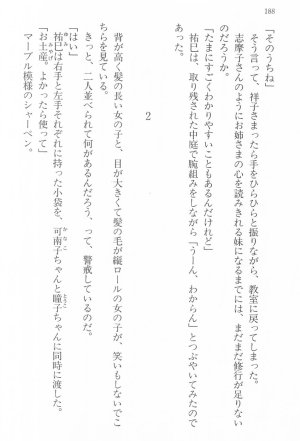 188
「そのうちね」
　そう言って、祥子さまったら手をひらひらと振りながら、教室に戻ってしまった。
　志摩子さんのようにお姉さまの心を読みきれる妹になるまでには、まだまだ修行が足りない
のだろうか。
「たまにすごくわかりやすいこともあるんだけれど」
　祐巳は、取り残された中庭で腕組みをしながら「うーん、わからん」とつぶやいてみたので
あった。
2
　背が高く髪の長い女の子と、目が大きくて髪の毛が縦ロールの女の子が、笑いもしないでこ
ちらを見ている。
　きっと、二人並べられて何があるんだろう、って、警戒しているのだ。
「はい」
　祐巳は右手と左手それぞれに持った小袋を、可南子ちゃんと瞳子ちゃんに同時に渡した。
「お土産。よかったら使って」
　マーブル模様のシャーペン。